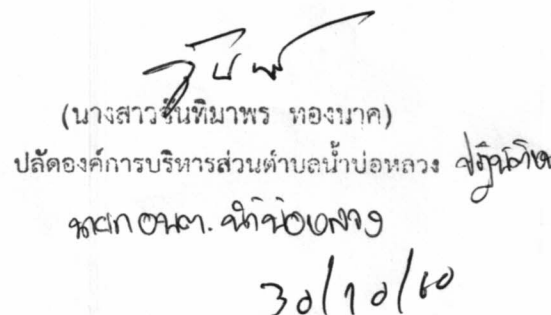 (นางสาวจันทิมาพร ทองนาค)
ปลัดองค์การบริหารส่วนตำบลน้ำบ่อหลวง ปฏิบัติหน้าที่
นายก อบต. น้ำบ่อหลวง
30/10/60